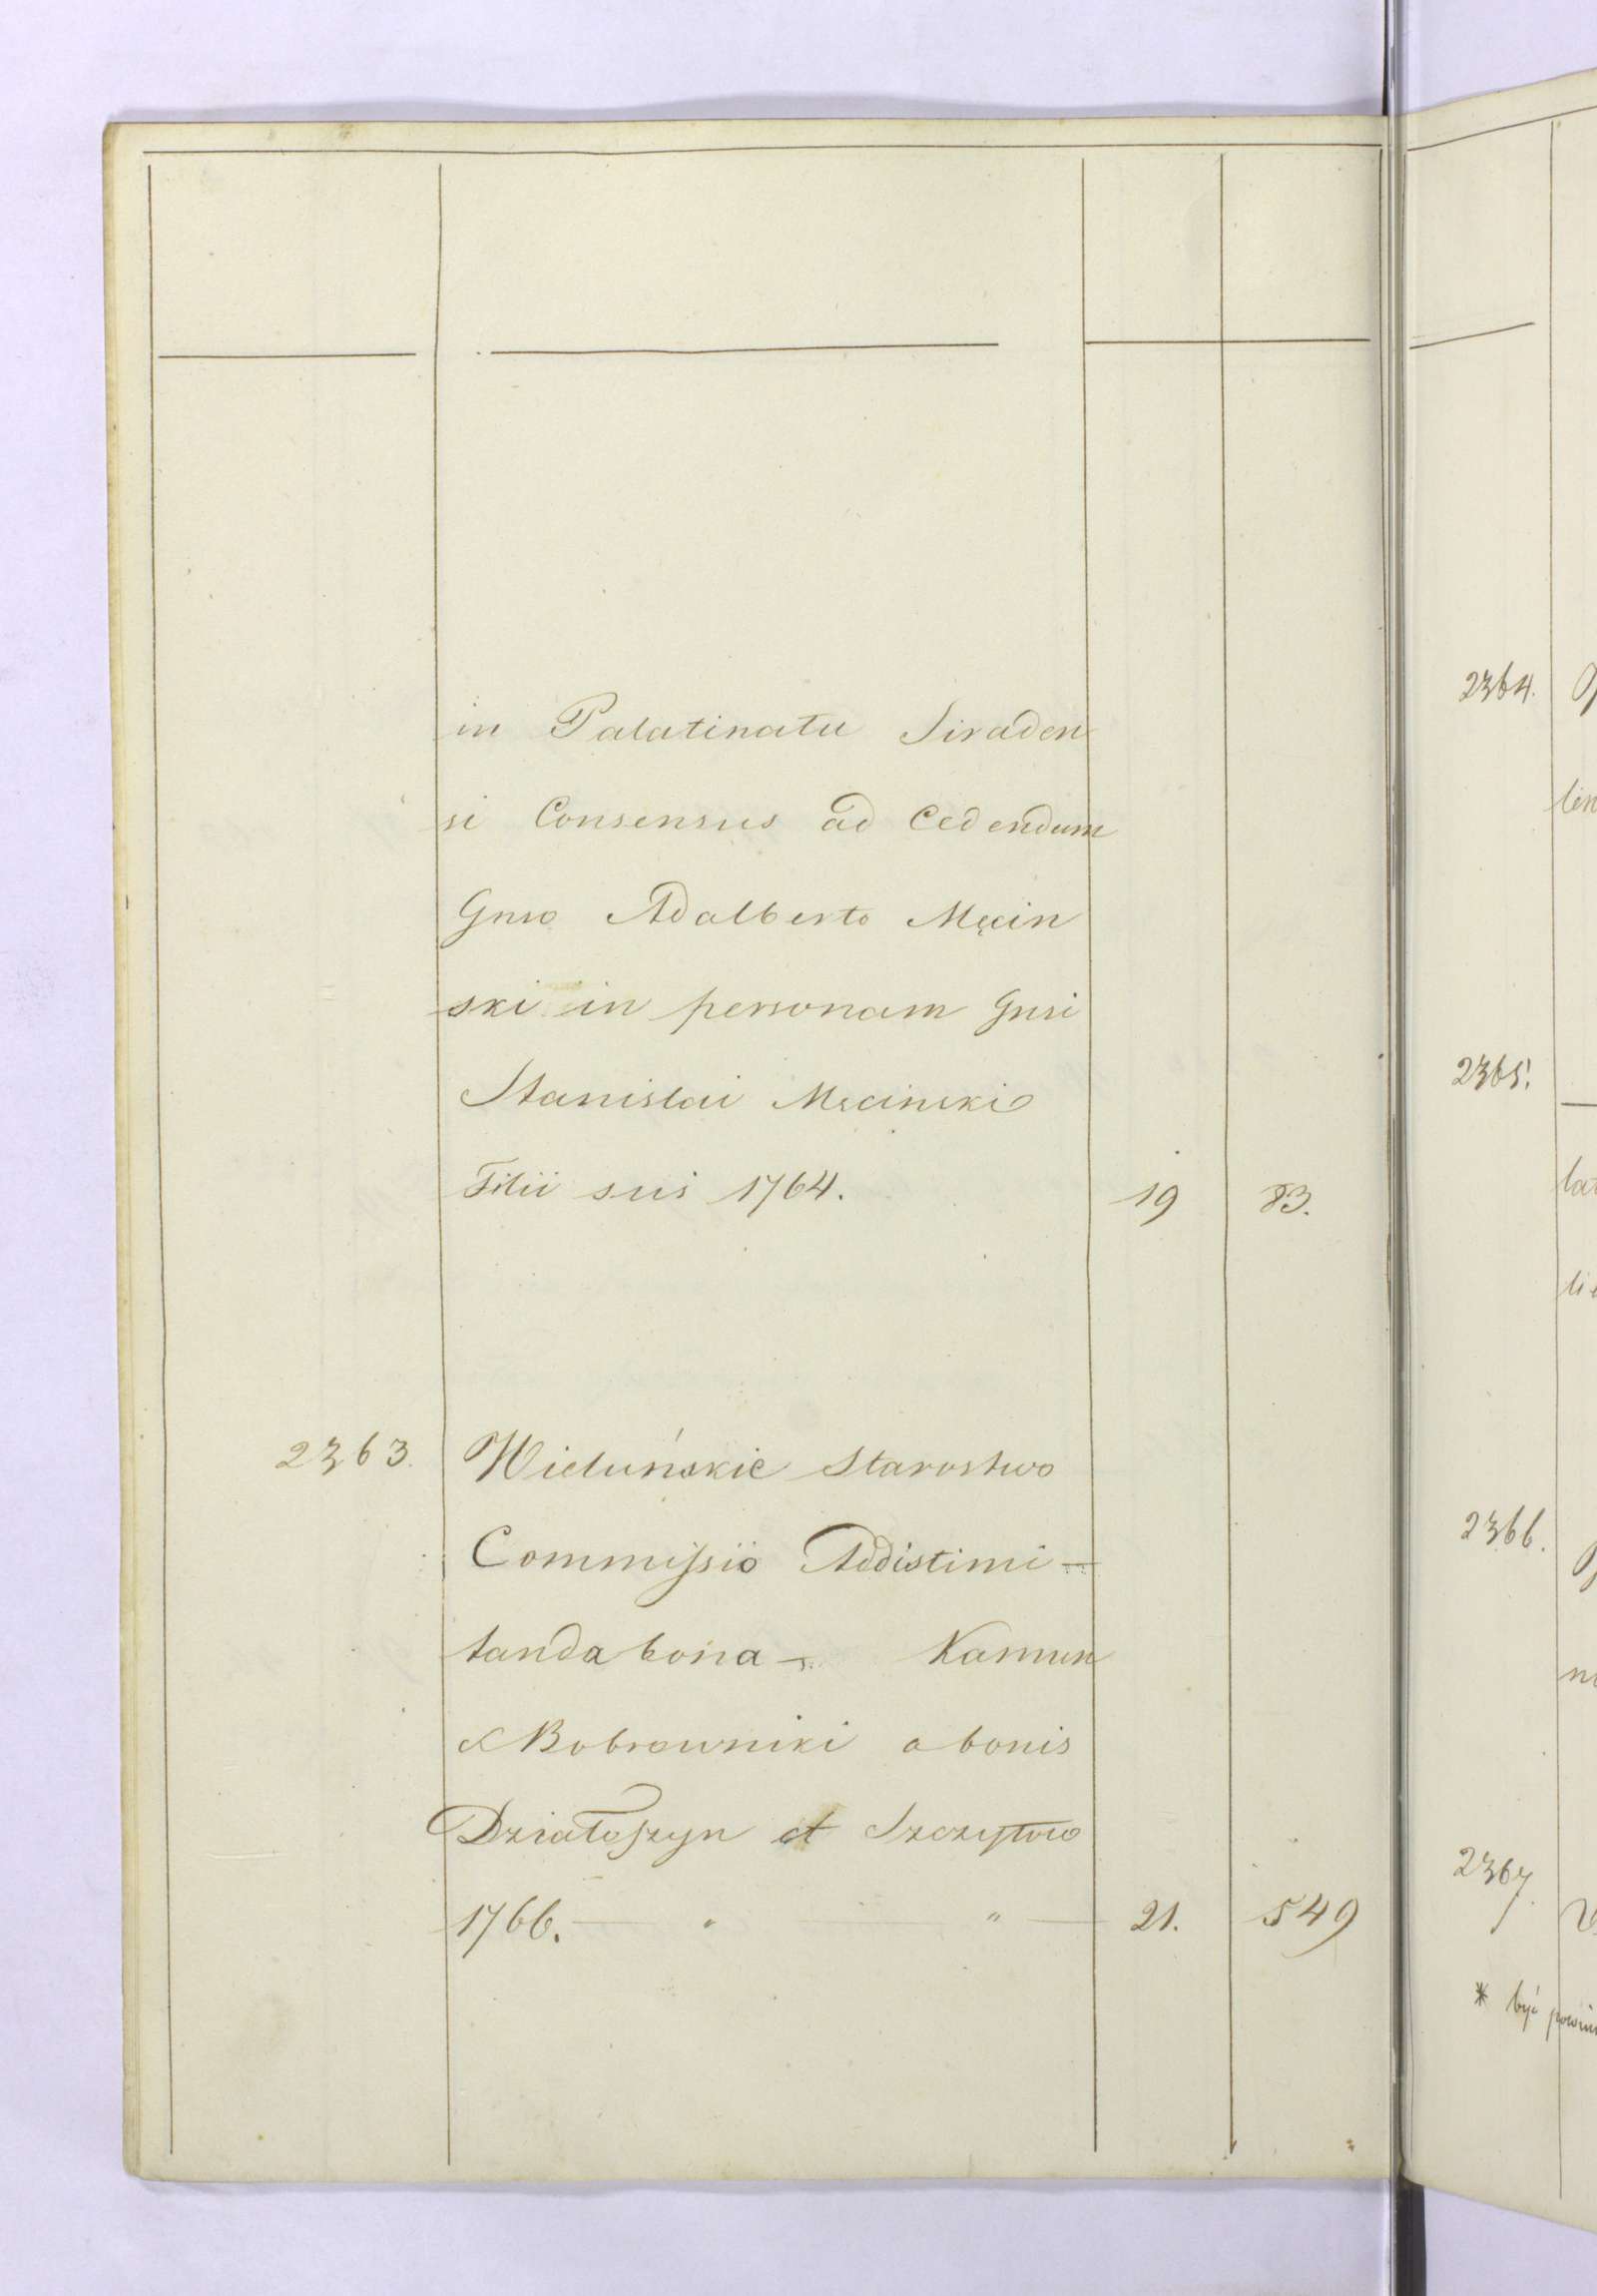 in Palatinatu Siraden
si Consensus ad Cedendum
Gnso Adalberto Męcin
ski in personam Gnsi
Stanislai Męcinski
Filii sui 1764. 19 83.
2363. Wieluńskie Starostwo
Commissio Addistimi-
tanda bona Kamun
& Bobrowniki a bonis
Działoszyn et Szczytowo
1766. " 21. 549
2364.
2365.
2366.
2367.
* być